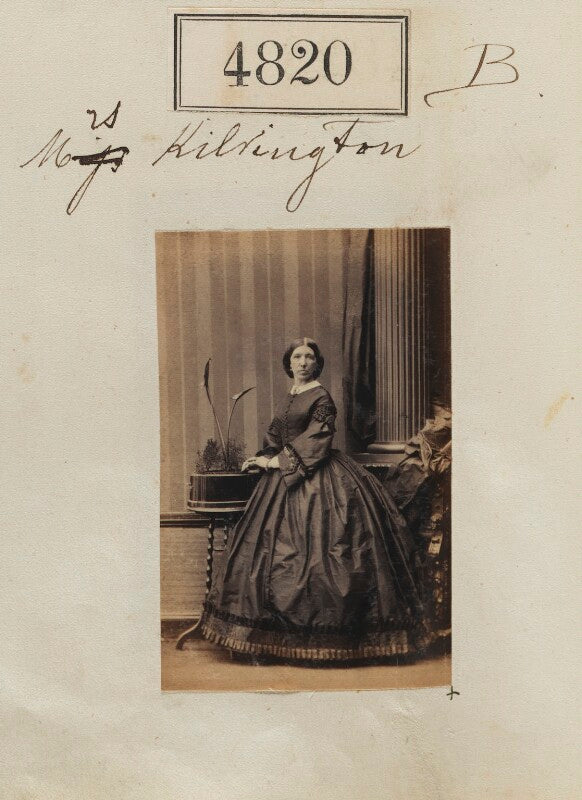 4820
B
Mrs Kilvington